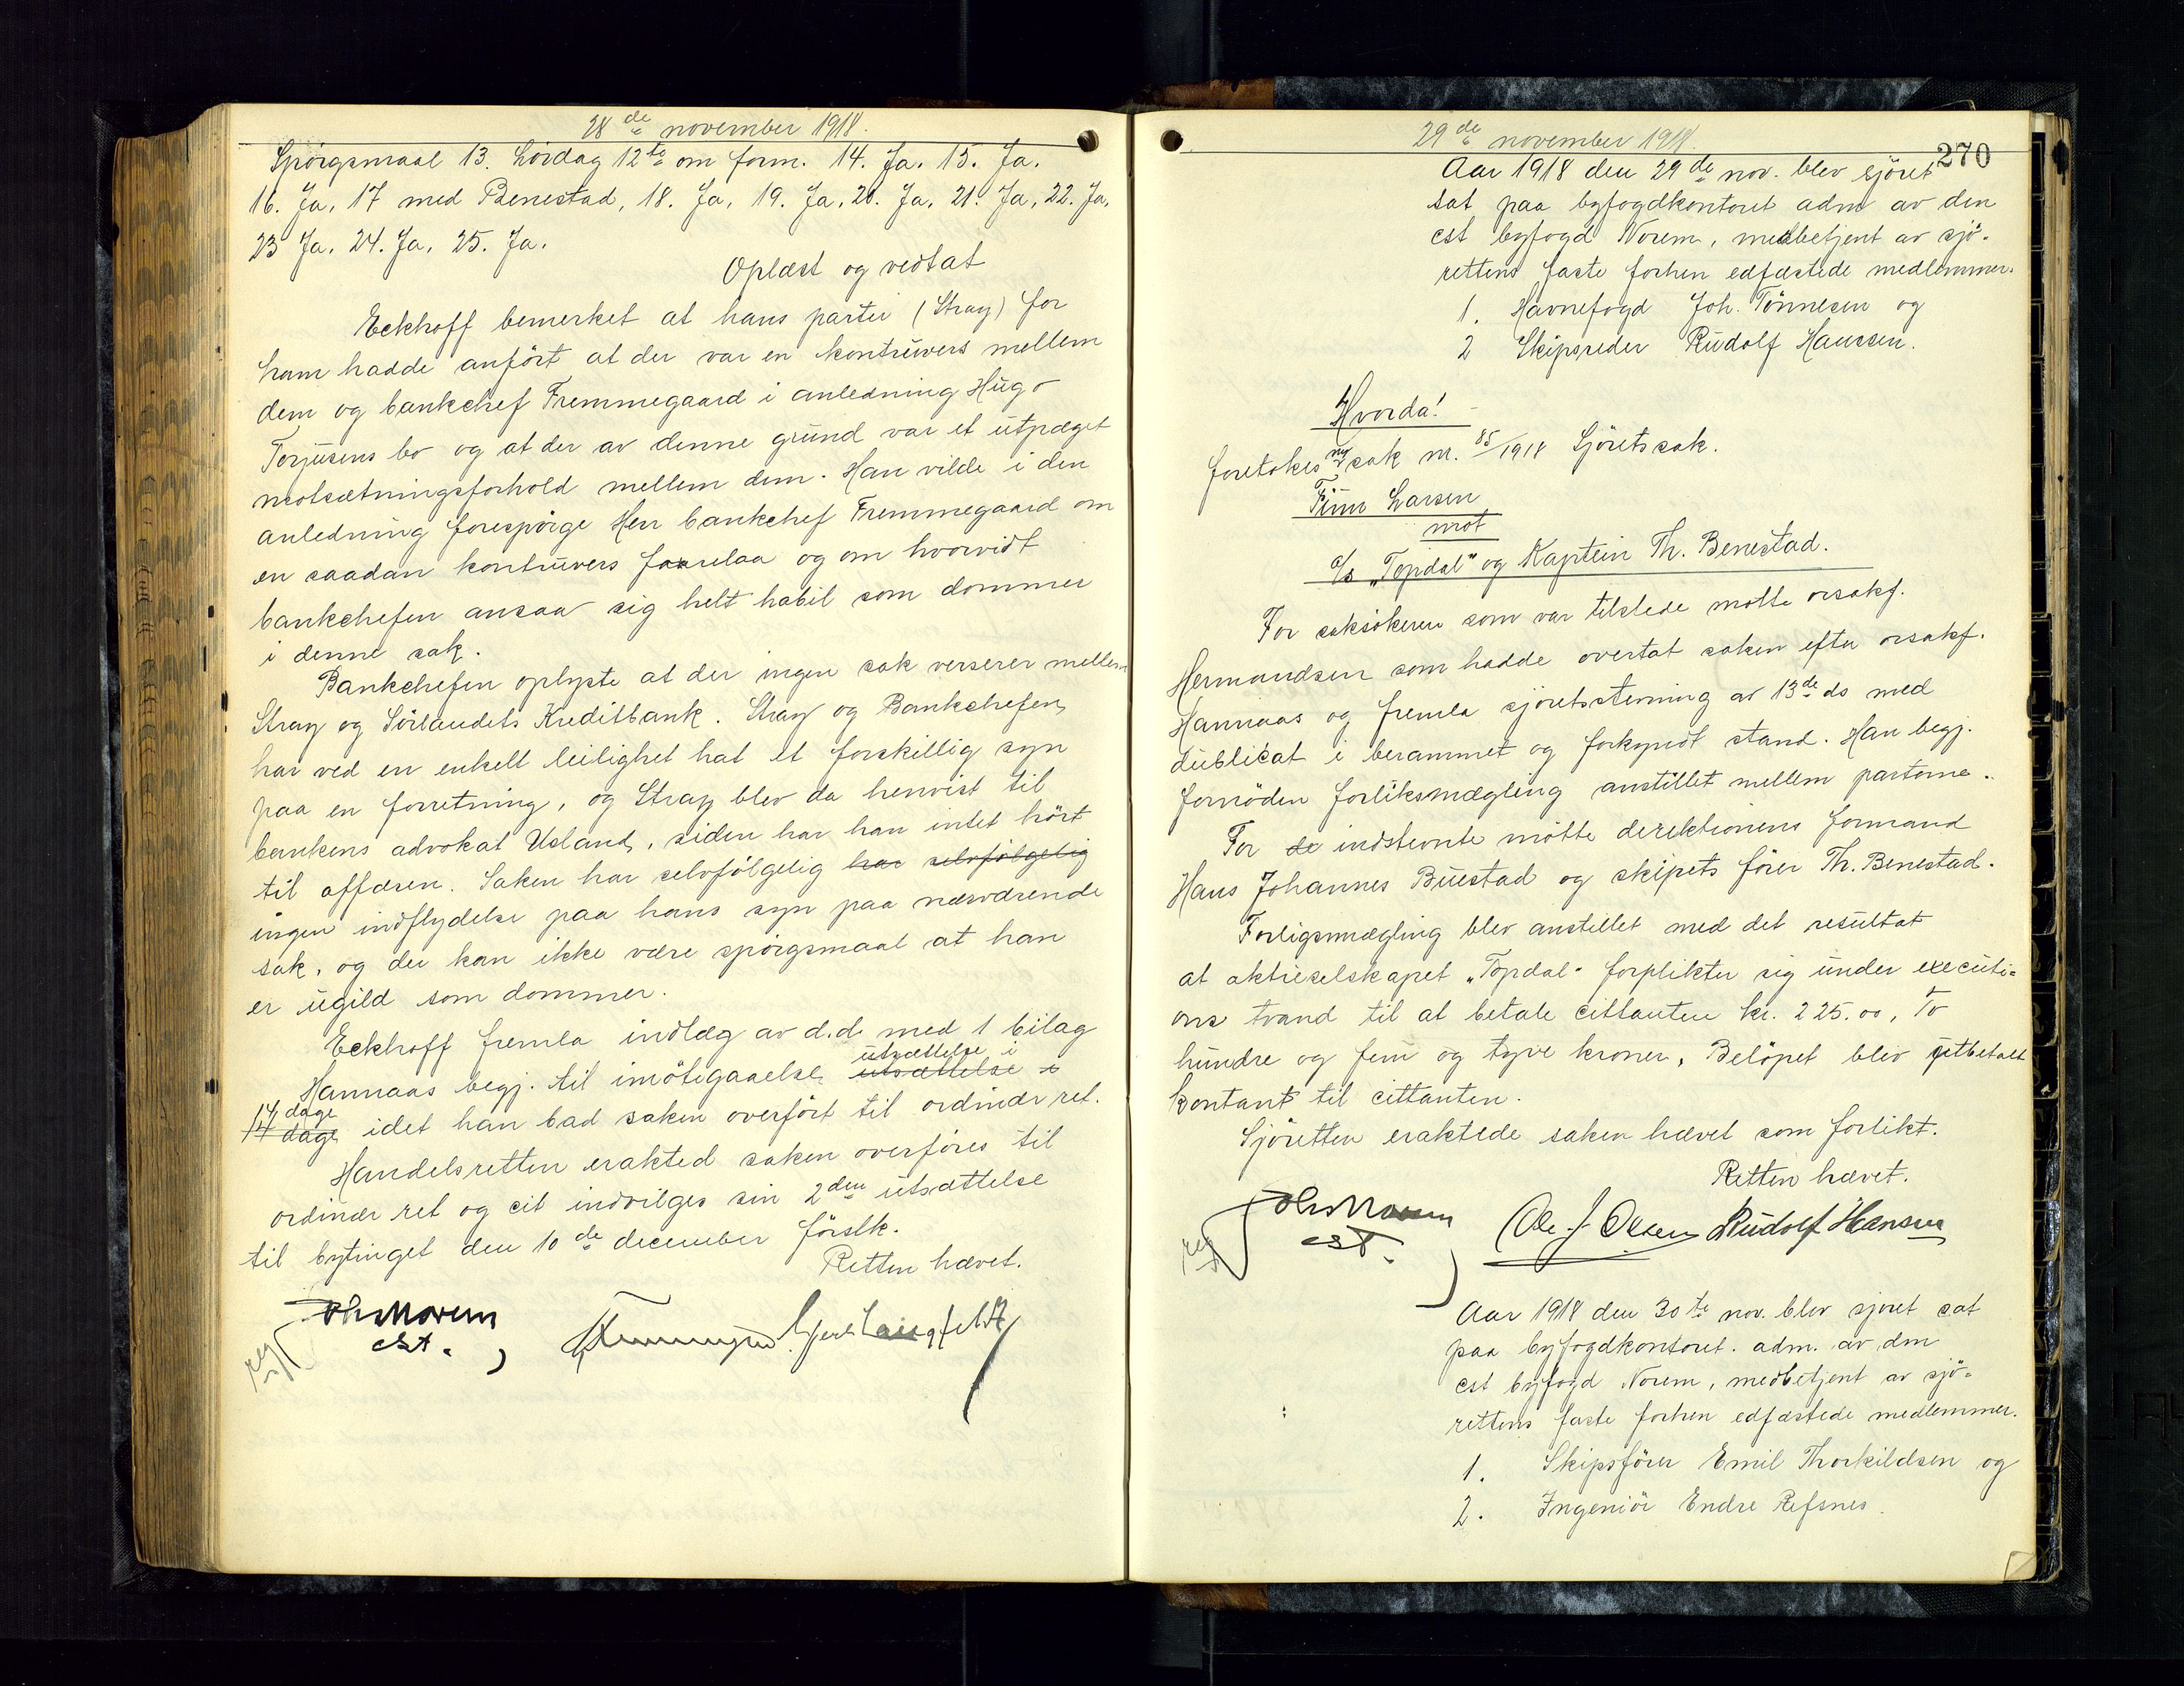 28de november 1918.
Spörgsmaal 13. Lördag 12te om form. 14. Ja. 15. Ja.
16. Ja, 17 med Benestad, 18. Ja, 19. Ja, 20. Ja, 21. Ja, 22. Ja,
23 Ja, 24. Ja, 25. Ja.
Oplæst og vedtat
Eckhoff bemerket at hans partei (Stray) for
ham hadde anfört at der var en kontruvers mellem
dem og bankchef Fremmegaard i anledning Hugo
Torjusens bo og at der av denne grund var et utpræget
motsætningsforhold mellem dem. Han vilde i den
anledning forespörge Herr bankchef Fremmegaard om
en saadan kontruvers faarelaa og om hvorvidt
bankchefen ansaa sig helt habil som dommer
i denne sak.
Bankchefen oplyste at der ingen sak verserer mellem
Stray og Sörlandets Kreditbank. Stray og Bankchefen
har ved en enkelt leilighet hat et forskillig syn
paa en forretning, og Stray blev da henvist til
bankens advokat Usland, siden har han intet hört
til affæren. Saken har selvfölgelig har selvfölgelig
ingen indflydelse paa hans syn paa nærværende
sak, og der kan ikke være spörgsmaal at han
er ugild som dommer.
Eckhoff fremla indlæg av d.d. med 1 bilag
utsættelse i
Hannaas begj. til imötegaaelse utsættelse i
14 dage
14 dage idet han bad saken overfört til ordinær ret.
Handelsretten erakted saken overföres til
ordinær ret og cit indvilges sin 2den utsættelse
til bytinget den 10de december förstk.
Retten hævet.
Norem
cst.
29de november 1918.
270
Aar 1918 den 29de nov. blev sjöret
sat paa byfogdkontoret adm av den
cst byfogd Norem, medbetjent av sjö-
rettens faste forhen edfæstede medlemmer.
1. Havnefogd Joh. Tönnesen og
2 Skipsreder Rudolf Hanssen.
Hvorda!
foretokes ny sak nr. 85/1918 Sjöretssak.
Finn Larsen
mot
a/s "Topdal" og Kaptein Th. Benestad.
For saksökeren som var tilstede mötte orsakf.
Hermandsen som hadde overtat saken efter orsakf.
Hannaas og fremla sjöretsstevning av 13de ds med
dublicat i berammet og forkyndt stand. Han begj.
fornöden forliksmægling anstillet mellem parterne.
For de indstevnte mötte direktionens formand
Hans Johannes Buestad og skipets förer Th. Benestad.
Forligsmægling blev anstillet med det resultat
at aktieselskapet "Topdal" forplikter sig under executi-
ons tvand til at betale cittanten kr. 225.00, To
hundre og fem og tyve kroner, Belöpet blev utbetalt
kontant til cittanten.
Sjöretten eraktede saken hævet som forlikt.
Retten hævet.
Norem
cst.
Ole J Olsen Rudolf Hansen
Aar 1918 den 30te nov. blev sjöret sat
paa byfogdkontoret. adm. av den
cst byfogd Norem, medbetjent av sjö-
rettens faste forhen edfæstede medlemmer.
1. Skipsförer Emil Thorkildsen og
2. Ingeniör Endre Refsnes